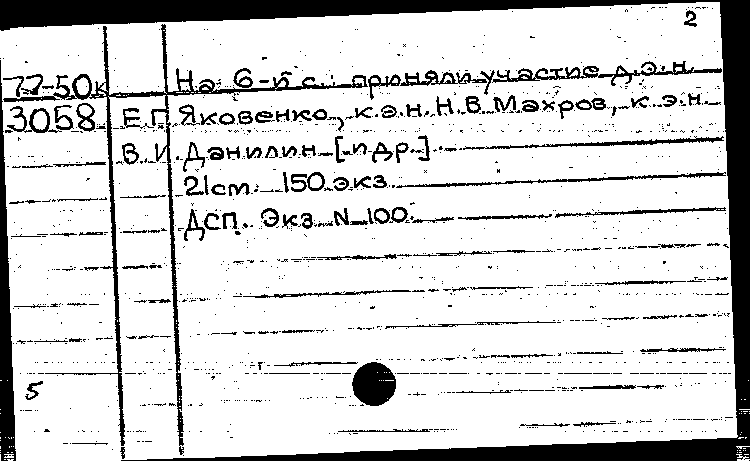 2
77-50к На 6-й с.: приняли участие д.э.н.
3058 Е.П. Яковенко, к.э.н. Н.В. Махров, к.э.н.
В.И. Данилин [и др.]
21см. 150 экз.
ДСП. Экз. N 100.
5